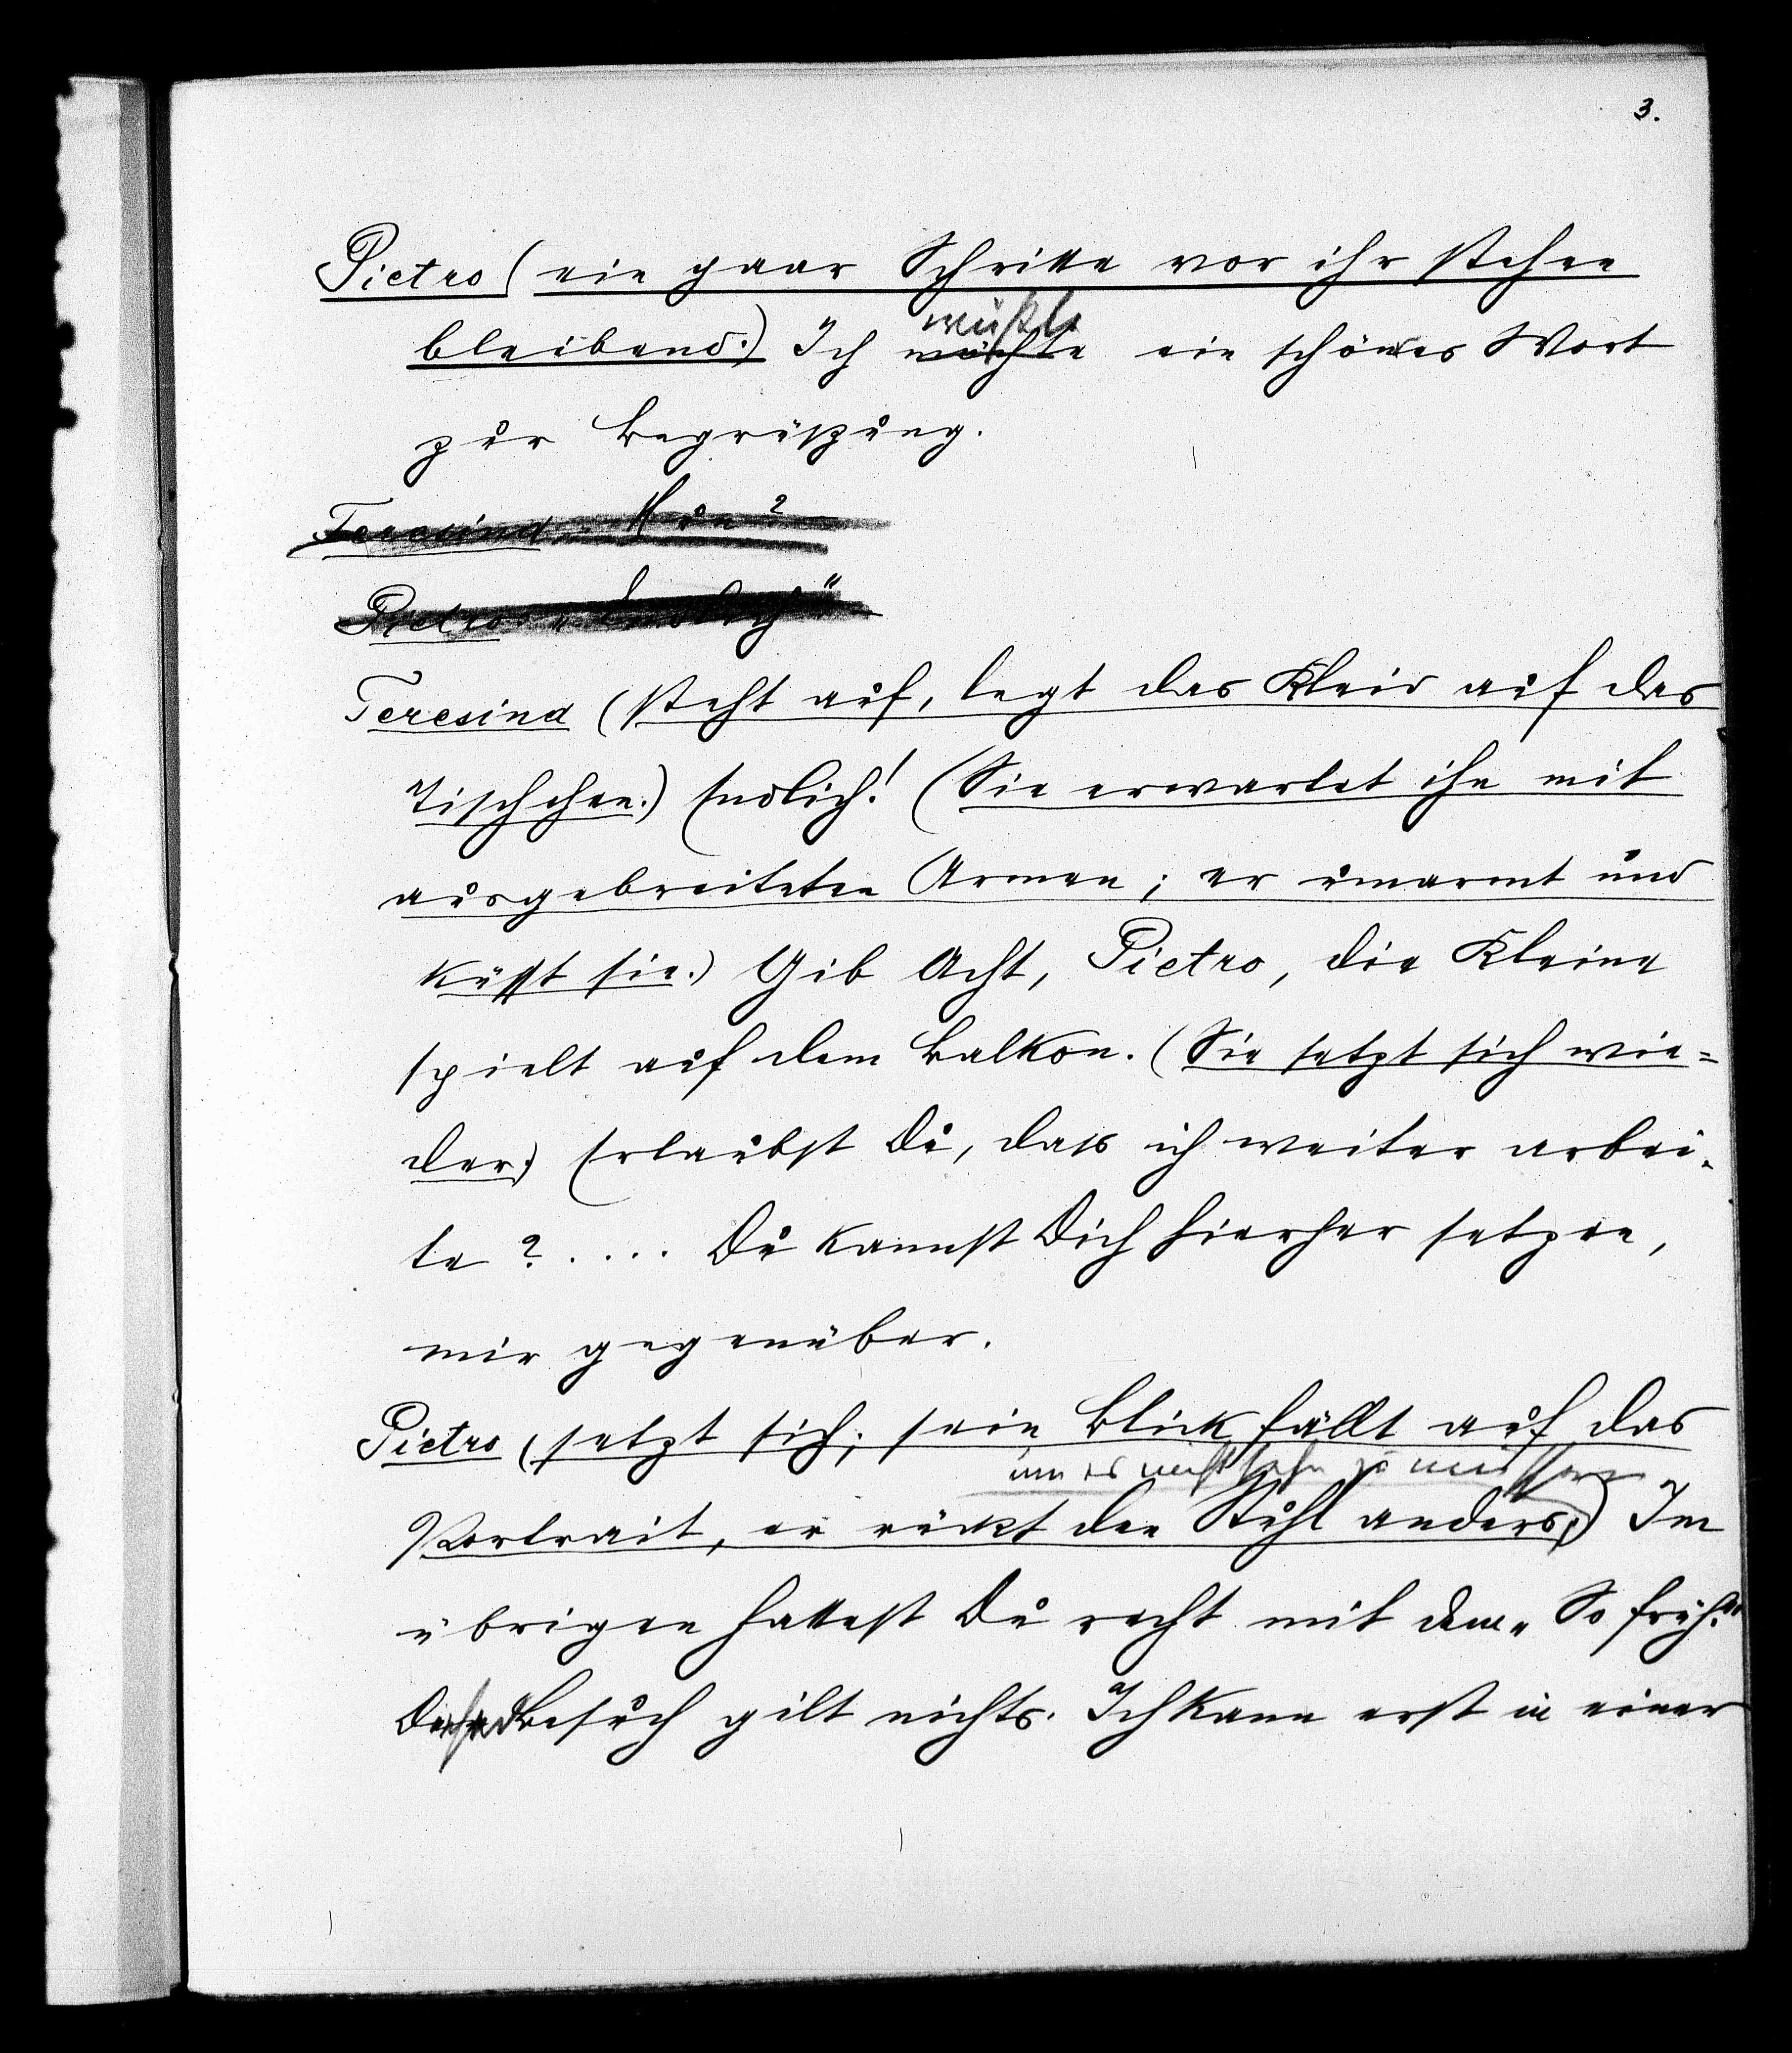 3.
Pietro (ein paar Schritte vor ihr stehen
wüßte
bleibend.) Ich möchte ein schönes Wort
zur Begrüßung.
Teresina „Nun?
Pietro „Endlich"
Teresina (steht auf, legt das Kleid auf das
Tischchen.) Endlich! (Sie erwartet ihn mit
ausgebreiteten Armen; er umarmt und
küsst sie.) Gib Acht, Pietro, die Kleine
spielt auf dem Balkon. (Sie setzt sich wie=
der.) Erlaubst Du, dass ich weiter arbei-
te?.... Du kannst Dich hierher setzen,
mir gegenüber.
Pietro (setzt sich; sein Blick fällt auf das
um es nicht sehn zu müssen
Portrait, er rückt den Stuhl anders.) Im
übrigen hattest Du recht mit dem „So früh."
Besuch gilt nichts. Ich kann erst in einer